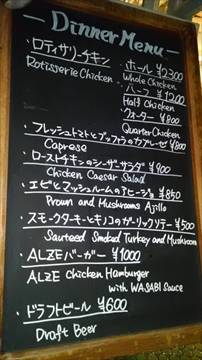 - Dinner Menu -
・ロティサリーチキン ・ホール ¥2300
Rotisserie Chicken Whole Chicken
・ハーフ ¥1200
Half Chicken
クォーター ¥800
Quarter Chicken
・フレッシュトマトとブッファラのカプレーゼ ¥800
Caprese
・ローストチキンのシーザーサラダ ¥900
Chicken Caesar Salad
・エビとマッシュルームのアヒージョ ¥850
Prown and Mushrooms Ajillo
・スモークターキーとキノコのガーリックソテー ¥500
Sauteed Smoked Turkey and Mushroom
・ALZEバーガー ¥1000
ALZE Chicken Hamburger
with WASABI Sauce
・ドラフトビール ¥600
Draft Beer